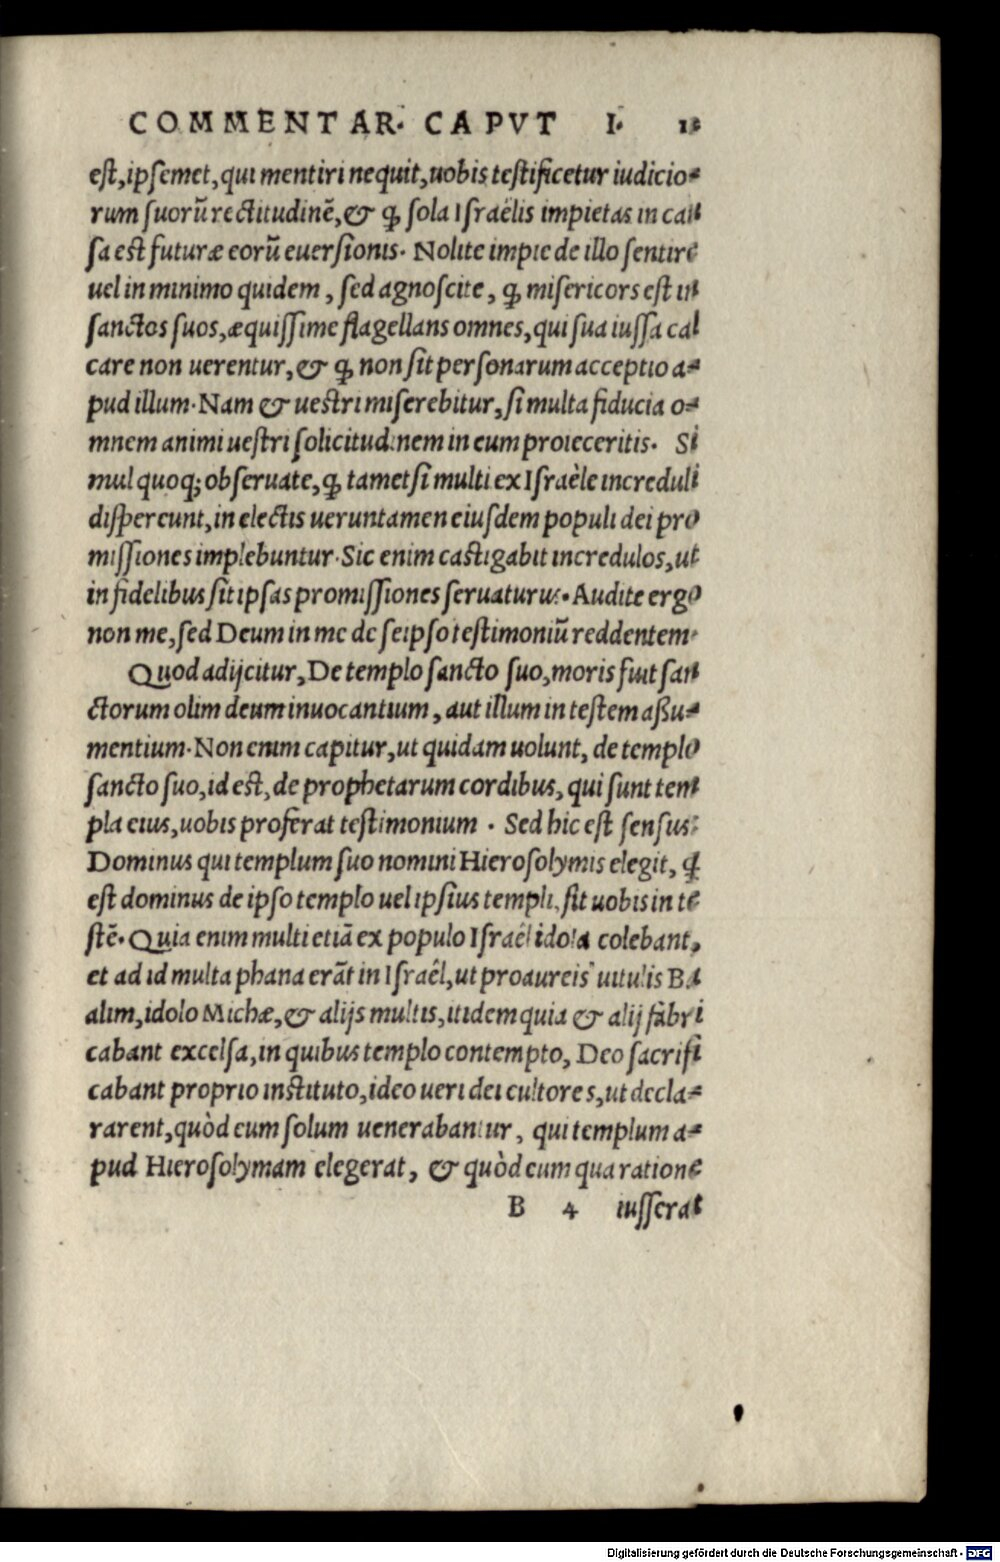 COMMENTAR. CAPVT I.
est, ipsemet, qui mentiri nequit, uobis testificetur iudicio-
rum suorū rectitudinē, & ꝙ sola Israëlis impietas in cau
sa est futuræ eorū euersionis. Nolite impie de illo sentire
uel in minimo quidem, sed agnoscite, ꝙ misericors est in
sanctos suos, æquissime flagellans omnes, qui sua iussa cal
care non uerentur, & ꝙ non sit personarum acceptio a-
pud illum. Nam & uestri miserebitur, si multa fiducia o-
mnem animi uestri solicitudinem in eum proieceritis. Si
mul quoq; obseruate, ꝙ tametsi multi ex Israële increduli
dispereunt, in electis ueruntamen eiusdem populi dei pro
missiones implebuntur. Sic enim castigabit incredulos, ut
in fidelibus sit ipsas promissiones seruaturus. Audite ergo
non me, sed Deum in me de seipso testimoniū reddentem.
Quod adijcitur, De templo sancto suo, moris fuit san
ctorum olim deum inuocantium, aut illum in testem aßu-
mentium. Non enim capitur, ut quidam uolunt, de templo
sancto suo, id est, de prophetarum cordibus, qui sunt tem
pla eius, uobis proferat testimonium. Sed hic est sensus:
Dominus qui templum suo nomini Hierosolymis elegit, ꝙ
est dominus de ipso templo uel ipsius templi, sit uobis in te
stē. Quia enim multi etiā ex populo Israël idola colebant,
et ad id multa phana erāt in Israël, ut pro aureis uitulis Ba
alim, idolo Michæ, & alijs multis, itidem quia & alij fabri
cabant excelsa, in quibus templo contempto, Deo sacrifi
cabant proprio instituto, ideo ueri dei cultores, ut decla-
rarent, quòd eum solum uenerabantur, qui templum a-
pud Hierosolymam elegerat, & quòd eum qua ratione
B 4 iusserat
Digitalisierung gefördert durch die Deutsche Forschungsgemeinschaft - DFG